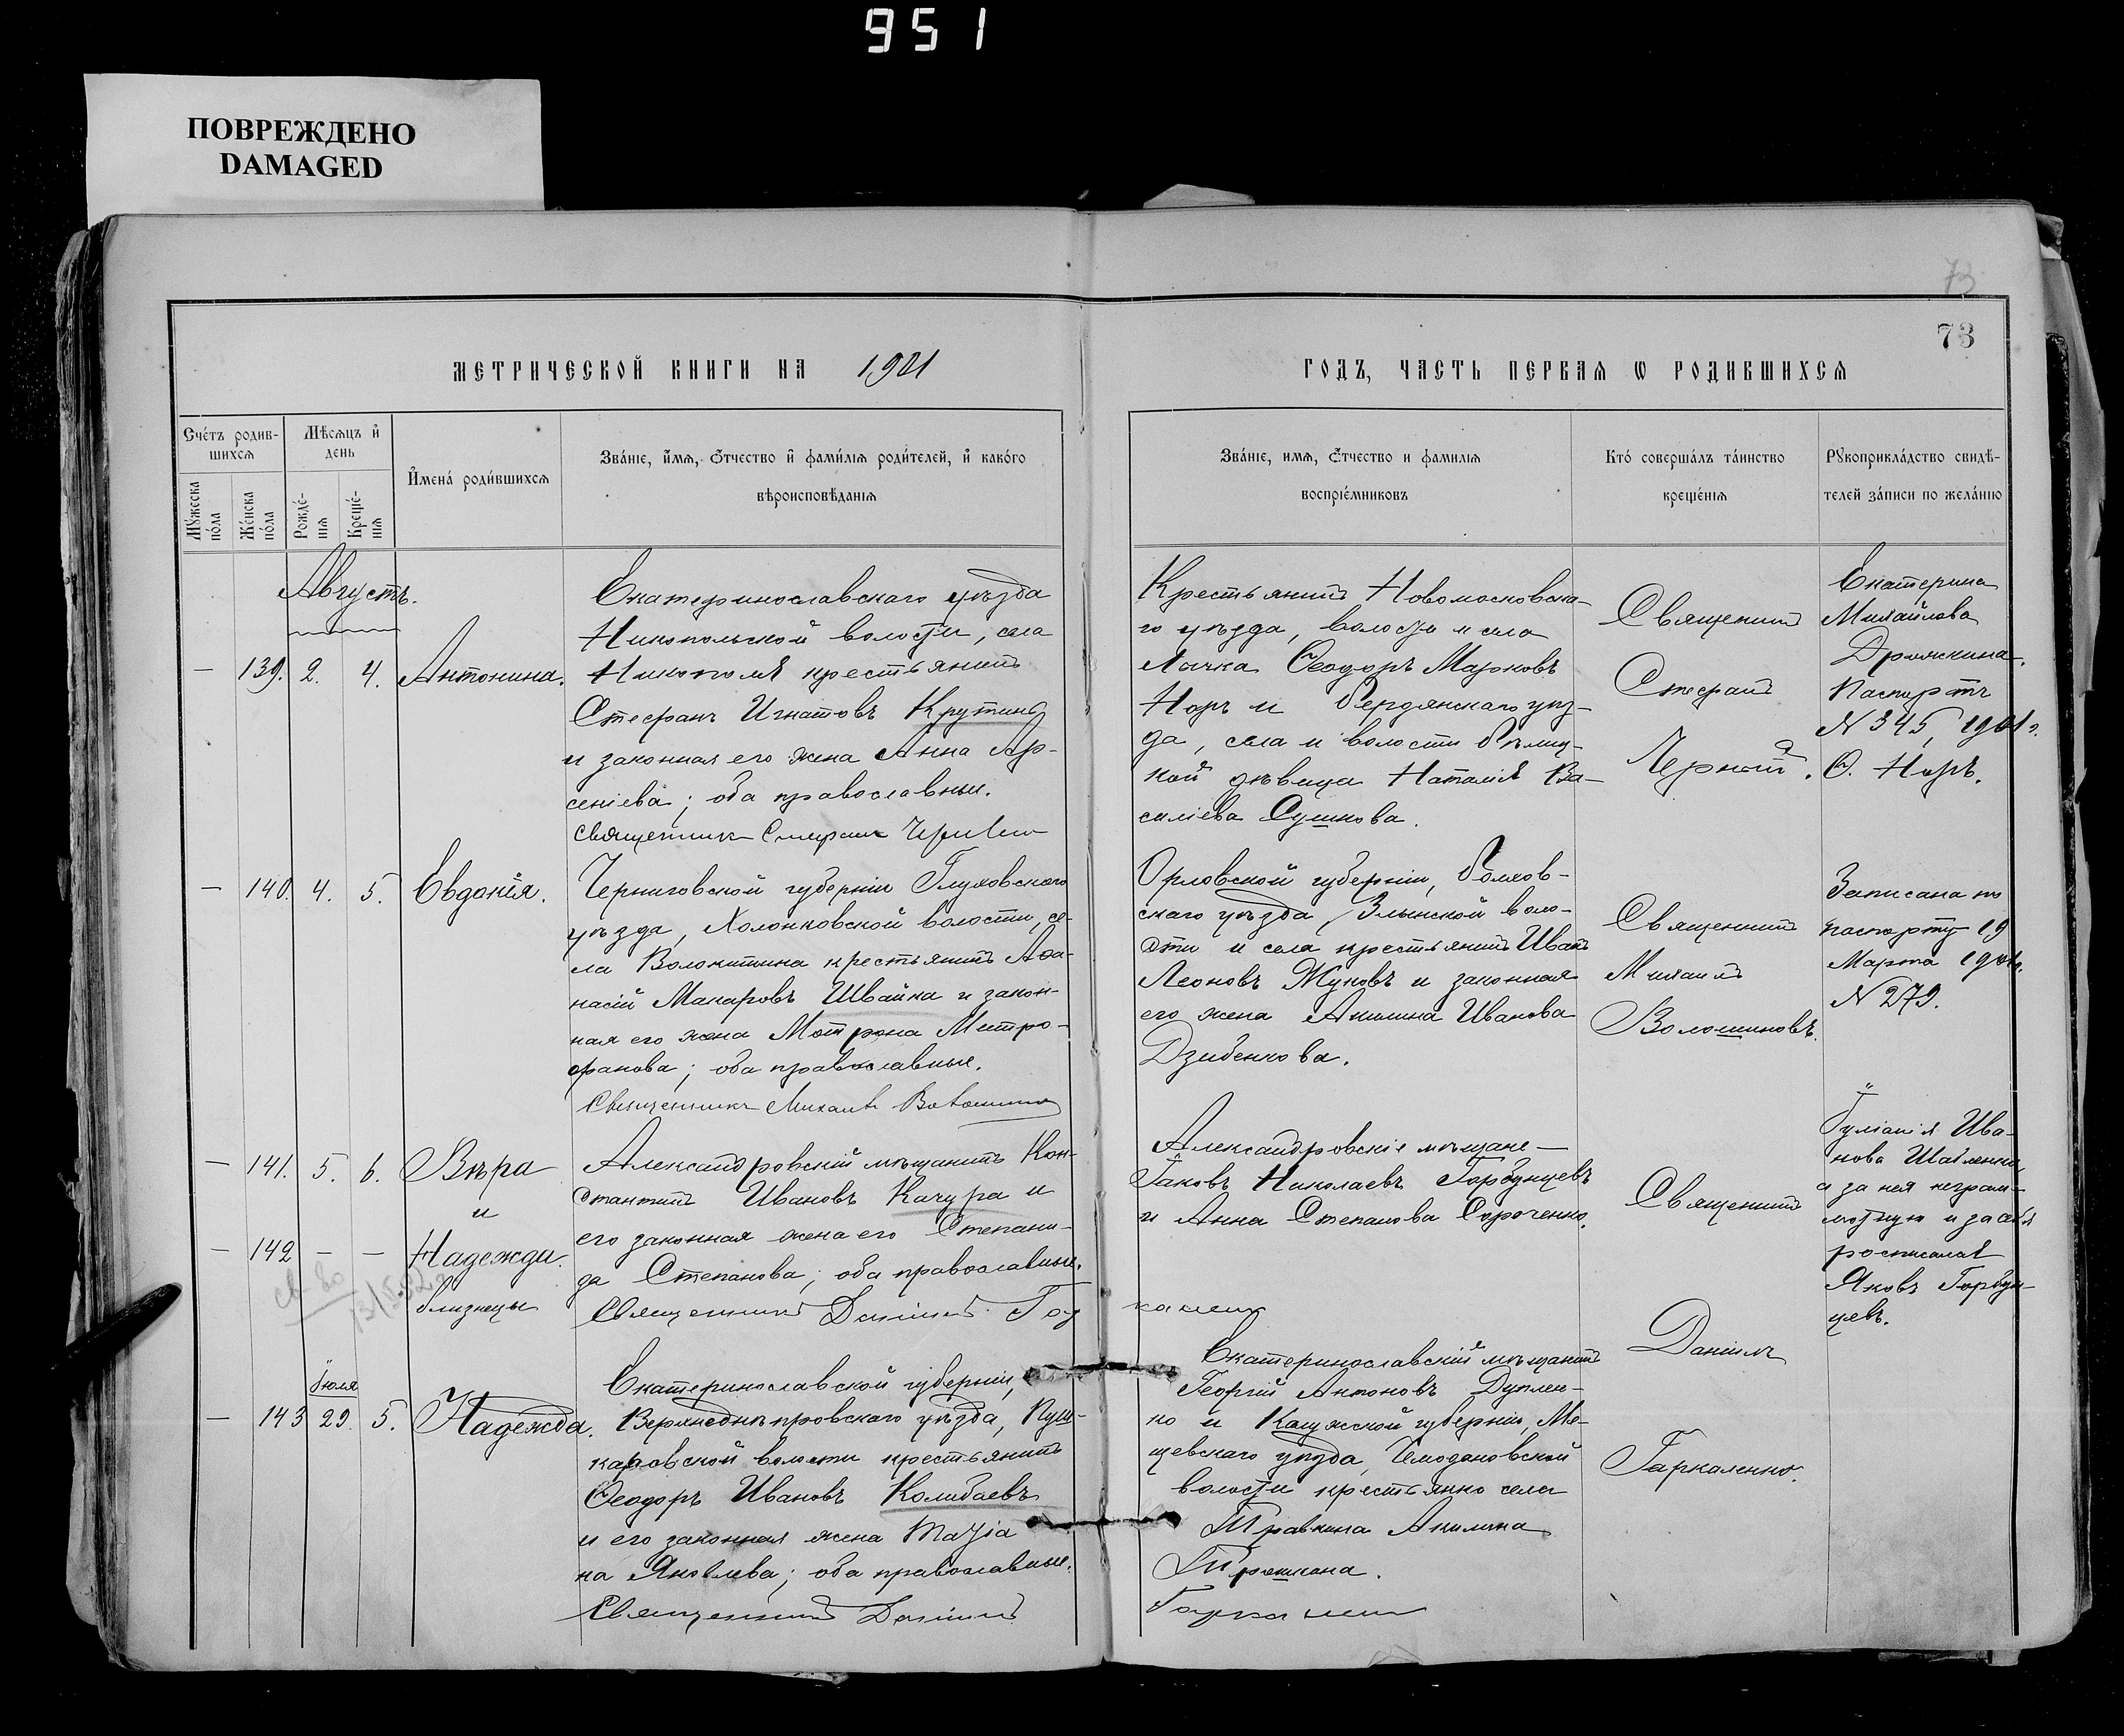 951
ПОВРЕЖДЕНО
DAMAGED
73
73
МЕТРИЧЕСКОЙ КНИГИ НА 1901
ГОДЪ, ЧАСТЬ ПЕРВАѦ Ѡ РОДИВШИХСѦ
Счетъ родив-
шихсѧ
Мѣсѧцъ и
день
Мꙋжеска
пола
Женска
пола
Рожде-
нїѧ
Креще-
нїѧ
Имена родившихсѧ
Званїе, имѧ, ѻтчество и фамилїѧ родителей, и какого
вѣроисповѣданїѧ
Званїе, имѧ, ѻтчество и фамилїѧ
воспрїемниковъ
Кто совершалъ таинство
крещенїѧ
Рꙋкоприкладство свидѣ-
телей записи по желанїю
Августъ.
— 139. 2. 4. Антонина.
Екатеринославскаго уѣзда
Никопольской волости, села
Никополя крестьянинъ
Стефанъ Игнатовъ Крутинъ
и законная его жена Анна Ар-
сеніева; оба православные.
Священникъ Стефанъ
Крестьянинъ Новомосковска-
го уѣзда, волости и села
Лычка Ѳеодоръ Марковъ
Норъ и Бердянскаго уѣз-
да, села и волости
кой дѣвица Наталія Ва-
силіева Сушкова.
Священникъ
Стефанъ
Черный.
Екатерина
Михайлова
Паспортъ
N 345, 1901 г.
Ѳ. Норъ.
— 140. 4. 5. Евдокія.
Черниговской губерніи Глуховского
уѣзда, Холопковской волости, се-
ла Волокитина крестьянинъ Аѳа-
насій Макаровъ Швайка и закон-
ная его жена Мотрона Митро-
фанова; оба православные.
Священникъ Михаилъ Волошиновъ
Орловской губерніи, Болхов-
скаго уѣзда, Злынской воло-
сти и села крестьянинъ Иванъ
Леоновъ Жуковъ и законная
его жена Акилина Иванова
Дзибенкова.
Священникъ
Михаилъ
Волошиновъ.
Записана по
паспорту 19
Марта 1901 г.
N 279.
— 141. 5. 6. Вѣра
и
— 142 — — Надежда.
близнецы
Александровскій мѣщанинъ Кон-
стантинъ Ивановъ Качура и
его законная жена его Степани-
да Степанова; оба православные.
Священникъ Даніилъ Гар
каленко
Александровскіе мѣщане —
Іаковъ Николаевъ Горбунцевъ
и Анна Степанова Сороченко.
Священникъ
Даніилъ
Гаркаленко.
Іуліанія Ива-
нова
а за нея неграм-
мотную и за себя
росписался
Яковъ Горбун-
цевъ.
Іюля
— 143 29. 5. Надежда.
Екатеринославской губерніи,
Верхнеднѣпровскаго уѣзда, Пуш-
каровской волости крестьянинъ
Ѳеодоръ Ивановъ Колибаевъ
и его законная жена Татіа
на Яковлева; оба православные.
Священникъ Даніилъ
Гаркаленко
Екатеринославскій мѣщанинъ
Георгій Антоновъ Дуплен-
ко и Калужской губерніи, Ме-
щевскаго уѣзда, Чемодановской
волости крестьянка села
Травкина Акилина
Трошкона.